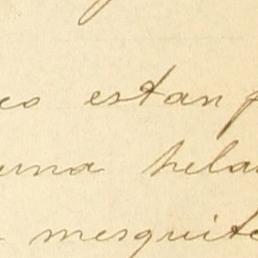 estan
una hela
mesquite